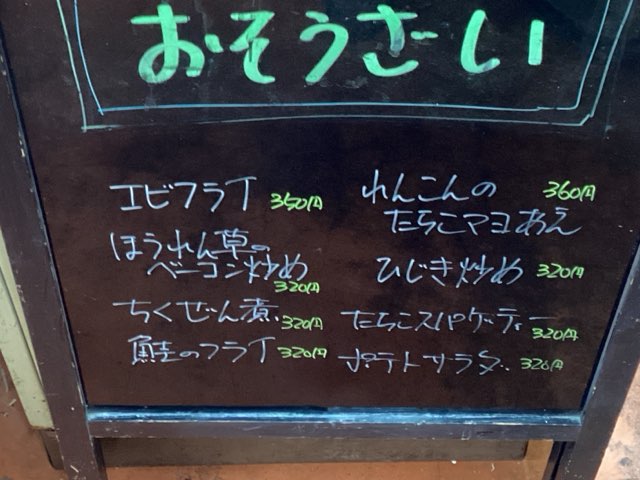 おそうざい
エビフライ 350円
ほうれん草の
ベーコン炒め
320円
ちくぜん煮 320円
鮭のフライ 320円
れんこんの 360円
たらこマヨあえ
ひじき炒め 320円
たらこスパゲッティー
320円
ポテトサラダ 320円